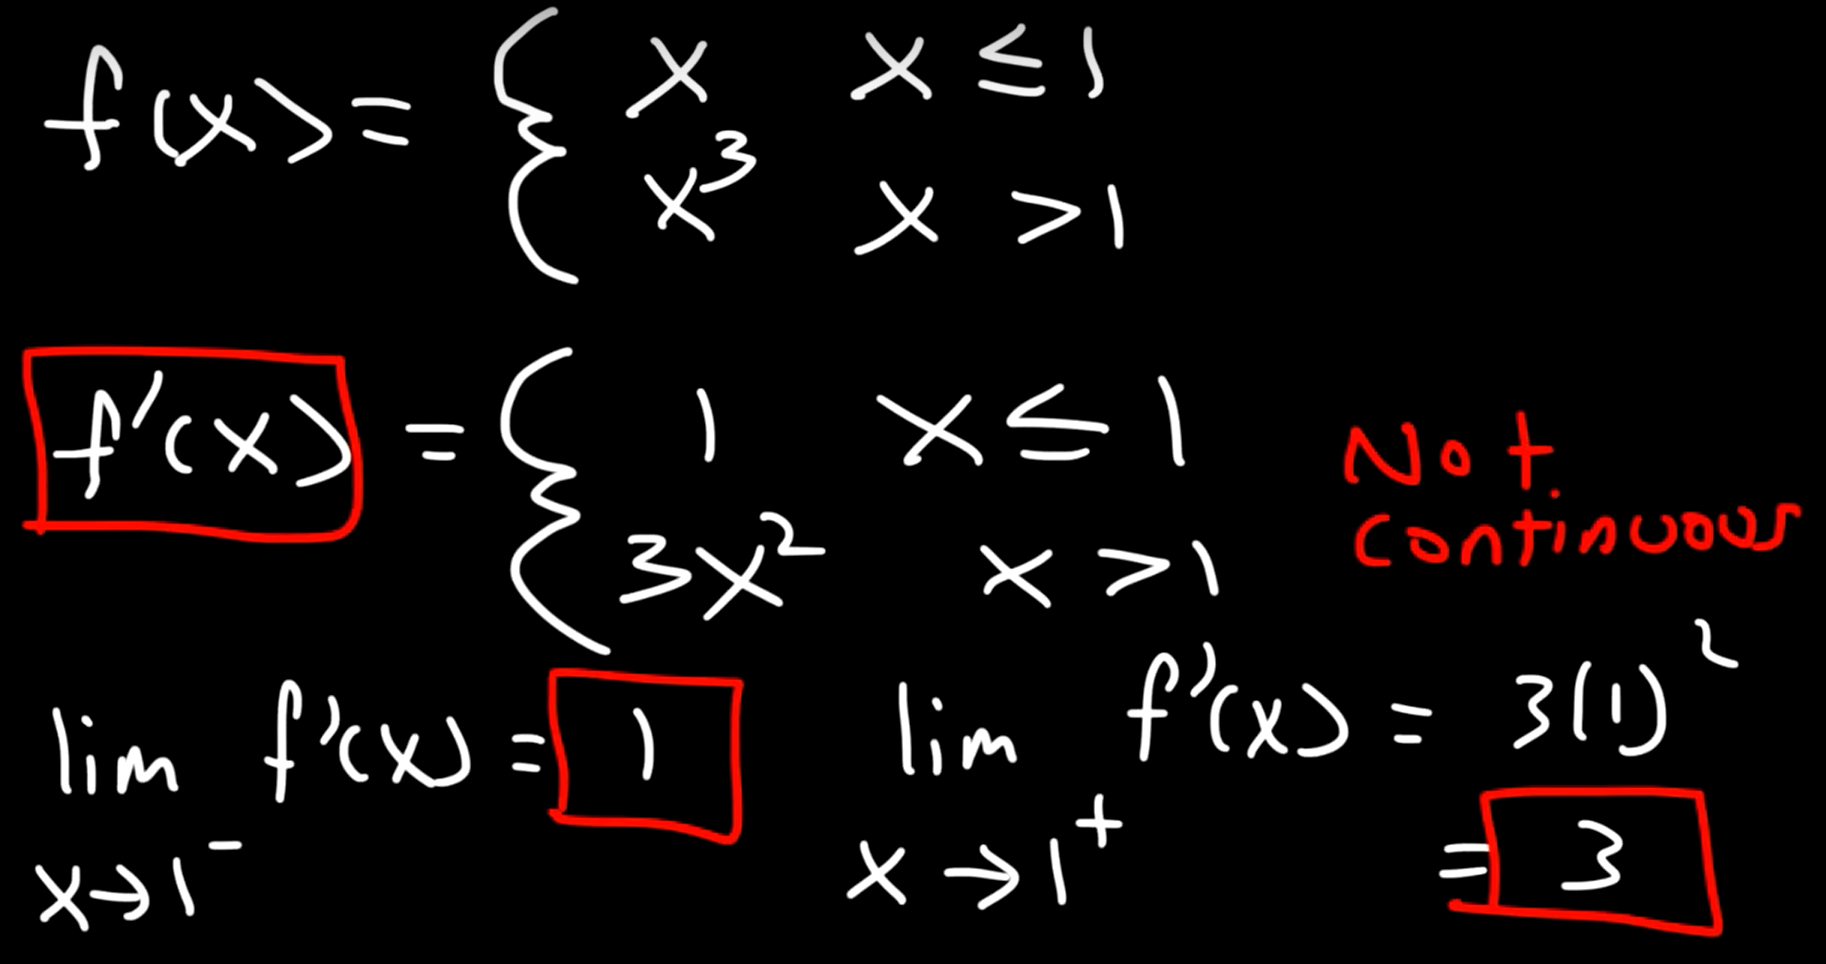 f(x) = { x   x ≤ 1
x³   x > 1
f'(x) = { 1   x ≤ 1
3x²   x > 1
Not
continuous
lim f'(x) = 1
x→1⁻
lim f'(x) = 3(1)²
x→1⁺
= 3